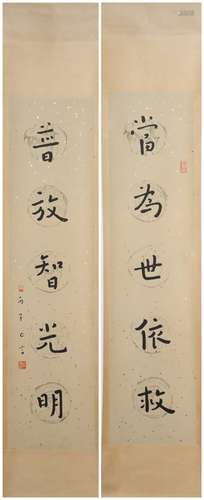 當為世依救
普放智光明